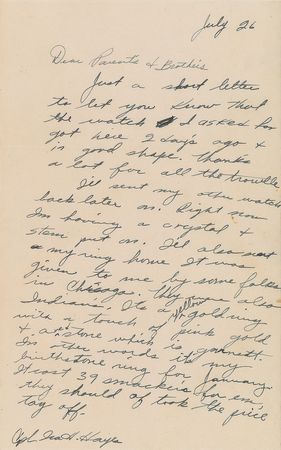 July 26
Dear Parents & Brothers
Just a short letter
to let you know that
the watch I asked for
got here 2 days ago &
in good shape. Thanks
a lot for all the trouble.
I'll sent my other watch
back later on. Right now
Im having a crystal &
stem put on. I'll also sent
my ring home It was
given to me by some folks
in Chicago. They were also
Indians. Its a yellow gold ring
with a touch of pink gold
& a stone which is garnett.
In other words its my
birthstone ring for January.
It cost 39 smackers for em,
they should of took the price
tag off.
Cpl. Ira H. Hayes